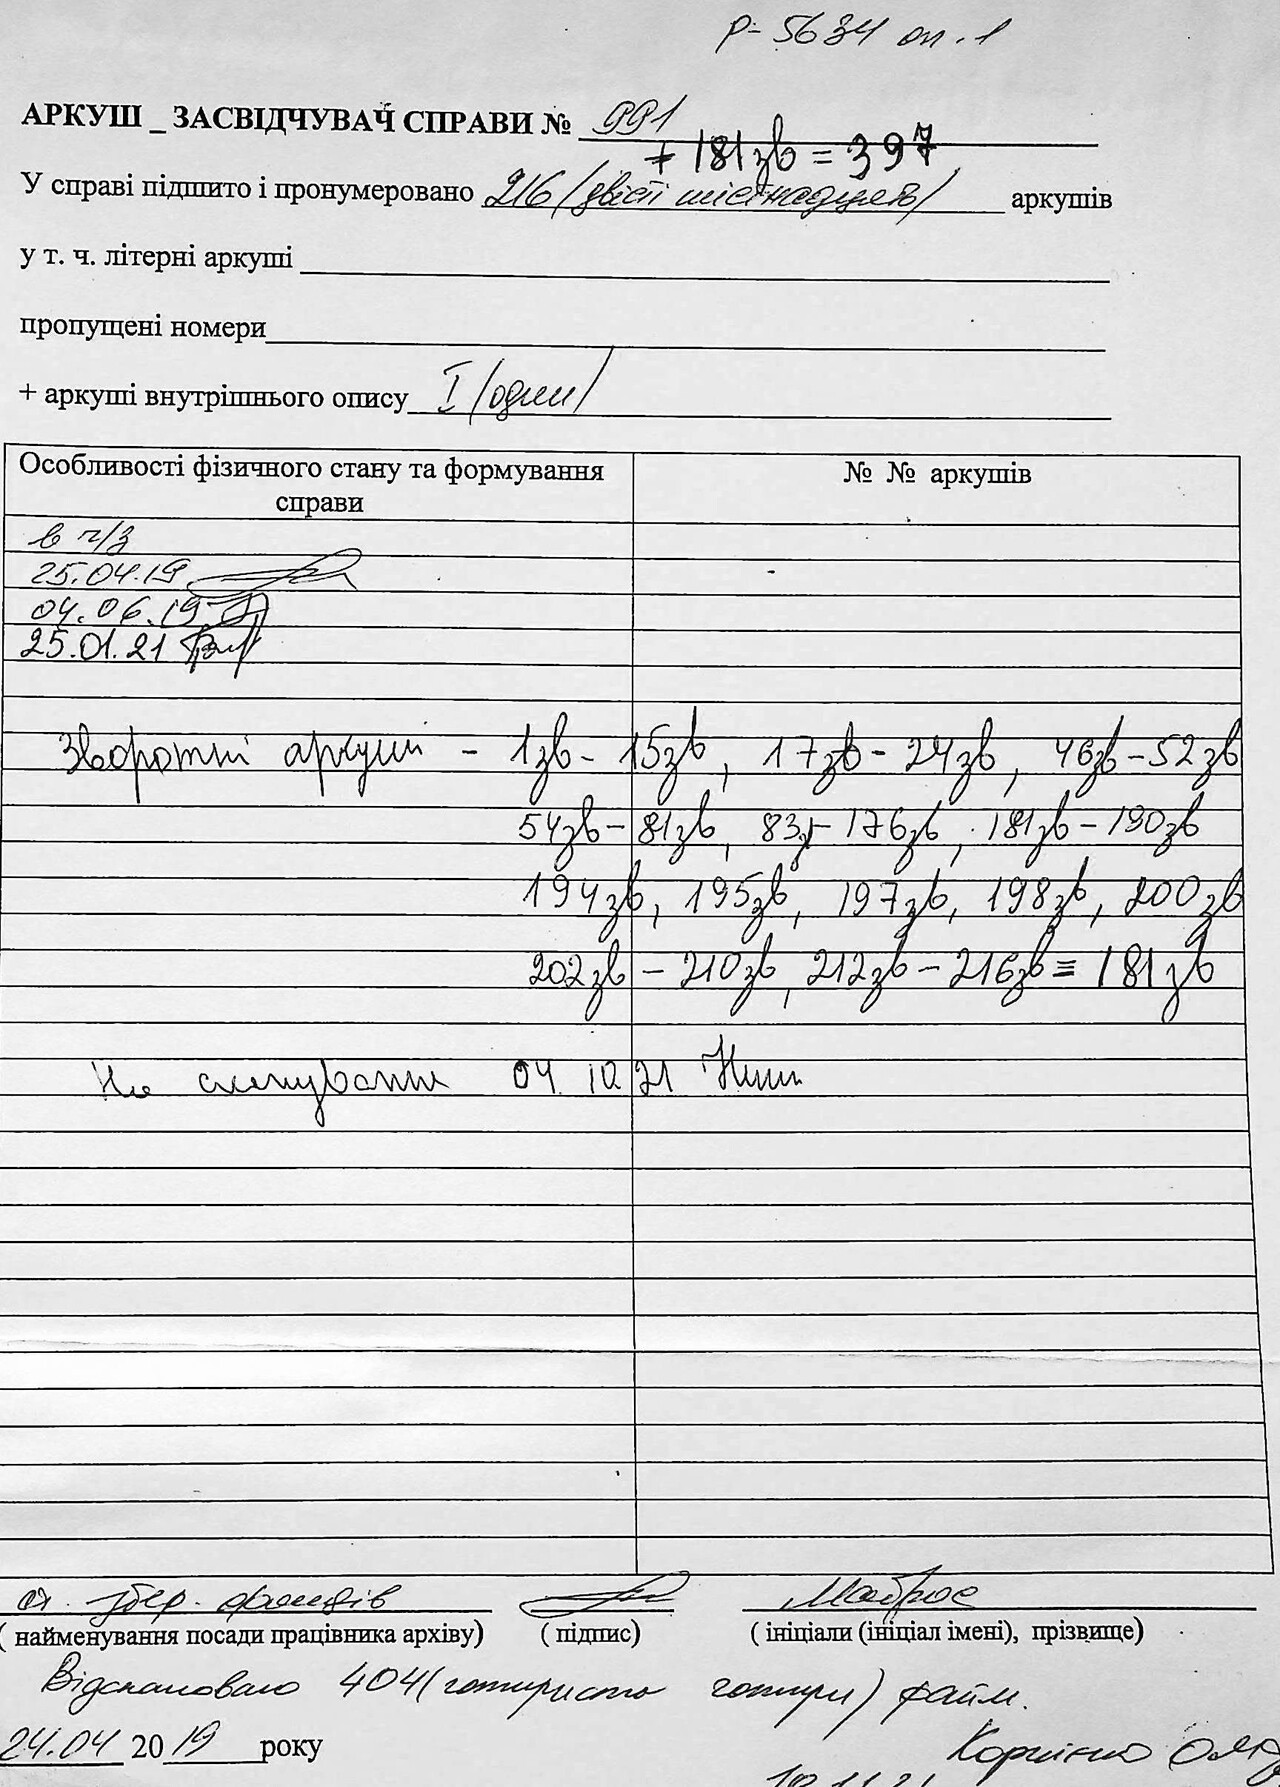 Р-5634 оп.1
АРКУШ _ ЗАСВІДЧУВАЧ СПРАВИ № 991
+ 181зв = 397
У справі підшито і пронумеровано 216 (двісті шістнадцять) аркушів
у т. ч. літерні аркуші
пропущені номери
+ аркуші внутрішнього опису I (один)
Особливості фізичного стану та формування справи
№ № аркушів
в ч/з
25.04.19
04.06.19
25.01.21
Зворотні аркуші - 1зв - 15зв, 17зв - 24зв, 46зв - 52зв
54зв - 81зв, 83з - 176зв, 181зв - 190зв
194зв, 195зв, 197зв, 198зв, 200зв
202зв - 210зв, 212зв - 216зв = 181зв
На сканування 04.10.21
ст. збер. фондів
( найменування посади працівника архіву)
( підпис)
( ініціали (ініціал імені), прізвище)
Відскановано 404 (чотириста чотири) файли.
24.04 2019 року